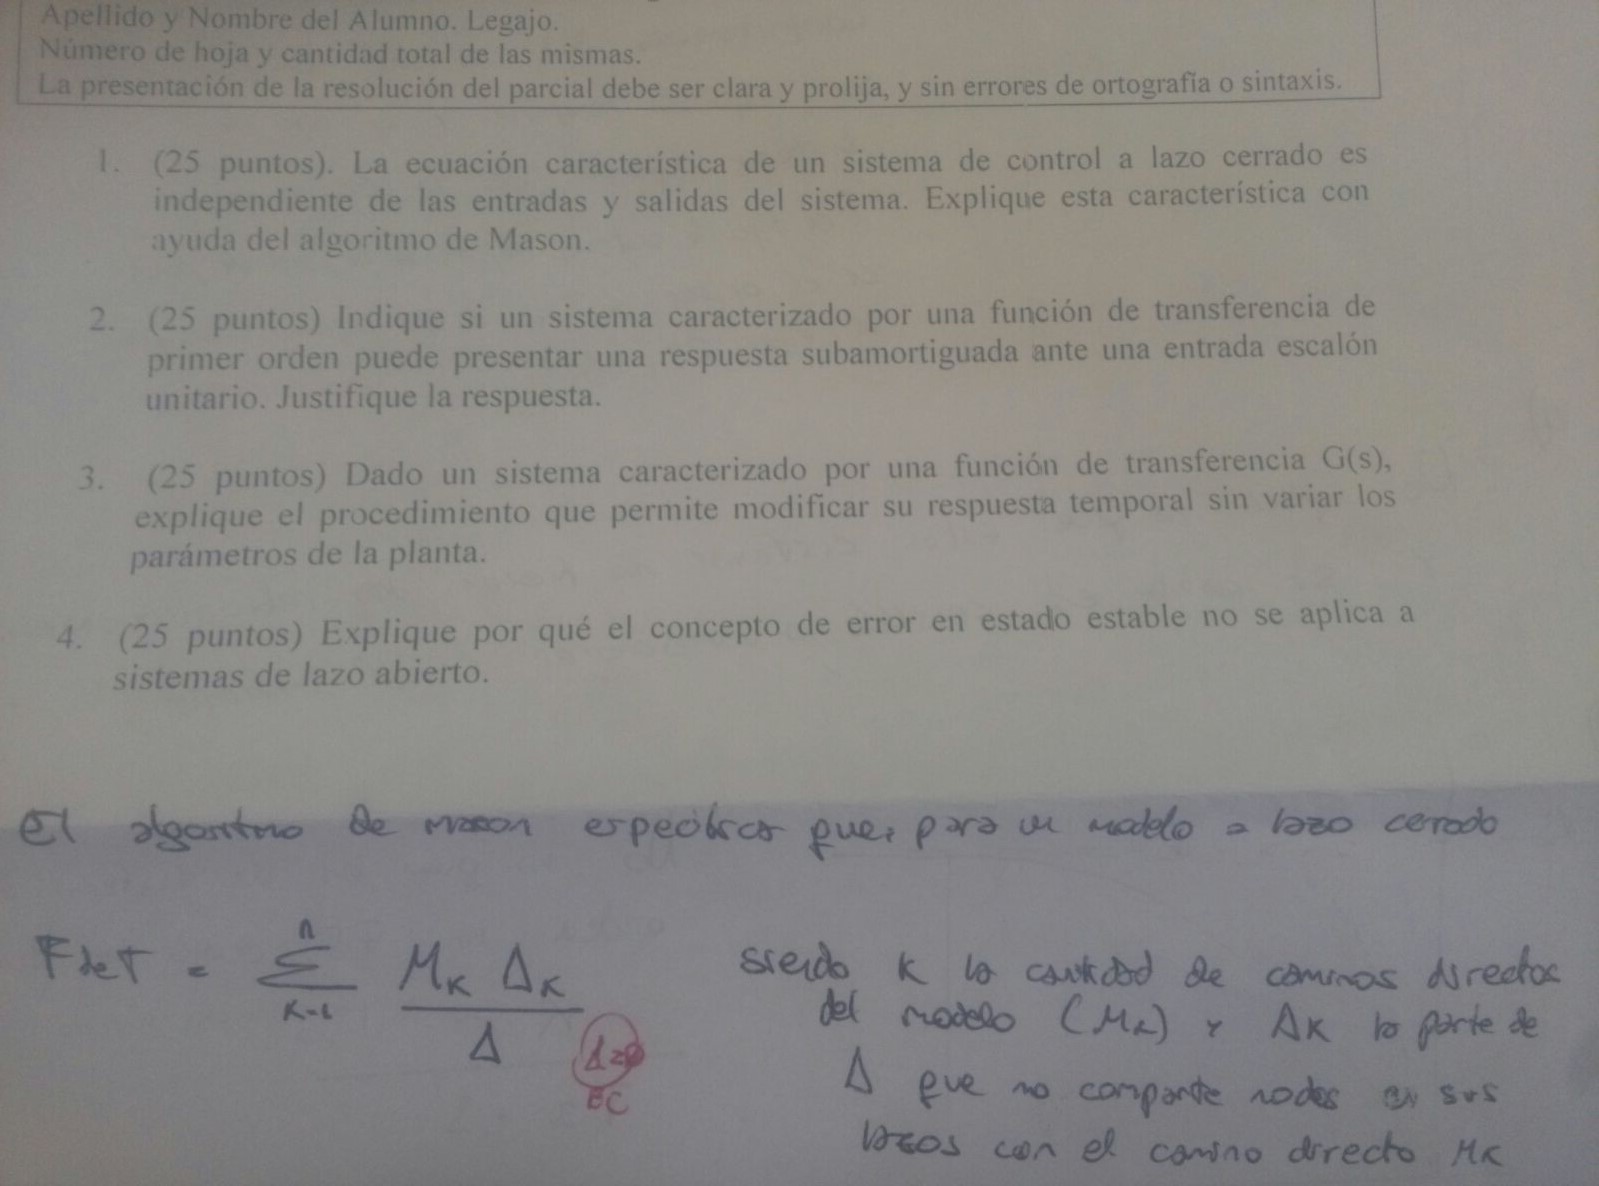 Apellido y Nombre del Alumno. Legajo.
Número de hoja y cantidad total de las mismas.
La presentación de la resolución del parcial debe ser clara y prolija, y sin errores de ortografía o sintaxis.
1. (25 puntos). La ecuación característica de un sistema de control a lazo cerrado es
independiente de las entradas y salidas del sistema. Explique esta característica con
ayuda del algoritmo de Mason.
2. (25 puntos) Indique si un sistema caracterizado por una función de transferencia de
primer orden puede presentar una respuesta subamortiguada ante una entrada escalón
unitario. Justifique la respuesta.
3. (25 puntos) Dado un sistema caracterizado por una función de transferencia G(s),
explique el procedimiento que permite modificar su respuesta temporal sin variar los
parámetros de la planta.
4. (25 puntos) Explique por qué el concepto de error en estado estable no se aplica a
sistemas de lazo abierto.
El algoritmo de mason especifica que, para un modelo a lazo cerrado
FdeT = Σ n K=1 MK ΔK / Δ
Δ=0
EC
siendo K la cantidad de caminos directos
del modelo (MK) y ΔK la parte de
Δ que no comparte nodos en sus
lazos con el camino directo MK